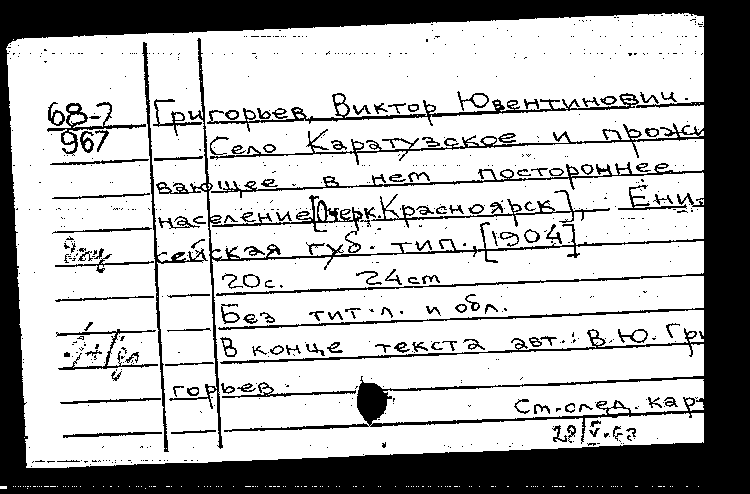 68-7
967
Григорьев, Виктор Ювентинович.
Село Каратузское и прожи
вающее в нем постороннее
население [Очерк. Красноярск], Ени-
сейская губ. тип., [1904].
20с. 24см
Без тит. л. и обл.
В конце текста авт.: В.Ю. Гри
горьев.
См. след. карт